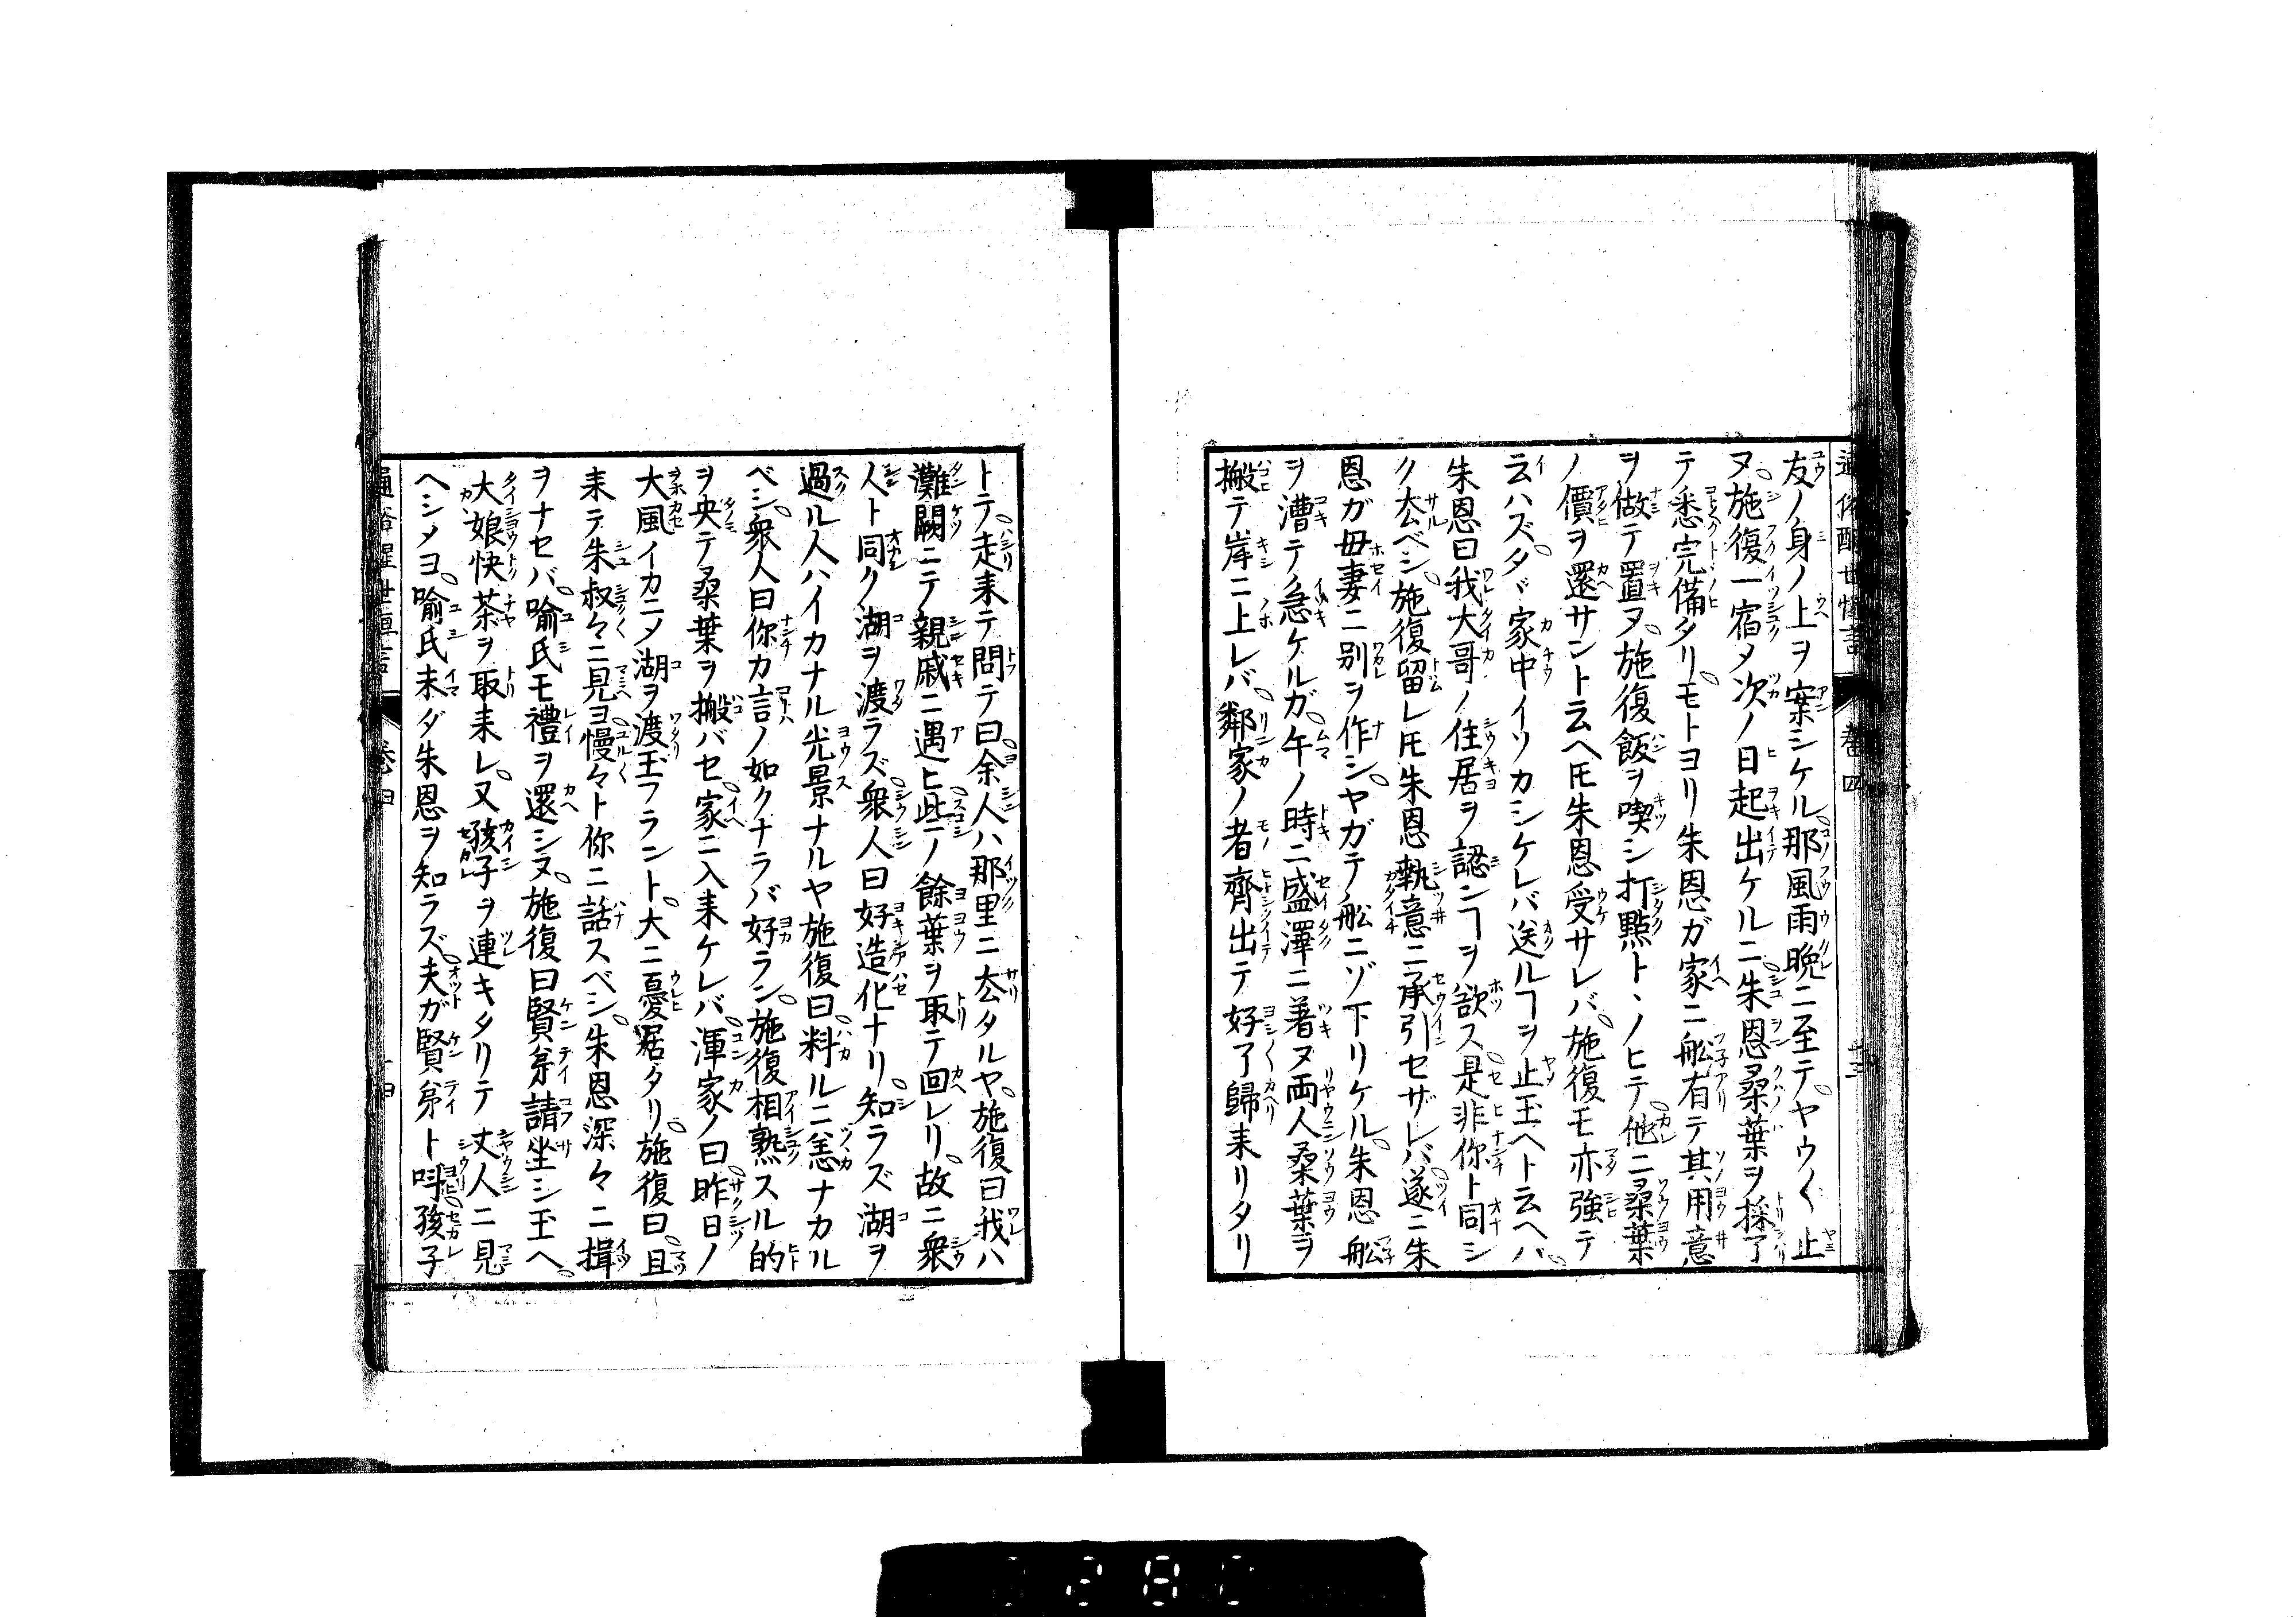 友ノ身ノ上ヲ案シケル。那風雨晩ニ至テ。ヤウ〱止
ヌ。施復一宿メ次ノ日起出ケルニ。朱恩桒葉ヲ採了
テ悉完備タリ。モトヨリ朱恩ガ家ニ舩有テ其用意
ヲ做テ置ヌ。施復飯ヲ喫シ打點トヽノヒテ。他ニ桒葉
ノ價ヲ還サント云ヘ𪜈朱恩受サレバ。施復モ亦強テ
云ハズ。タヾ家中イソカシケレバ送ルヿヲ止玉ヘト云ヘバ。
朱恩曰我大哥ノ住居ヲ認ンヿヲ欲ス。是非你ト同シ
ク厺ベシ。施復留レ𪜈朱恩執意ニ承引セザレバ。遂ニ朱
恩ガ毋妻ニ別ヲ作シ。ヤガテ舩ニゾ下リケル。朱恩舩
ヲ漕テ急ケルガ。午ノ時ニ盛澤ニ著ヌ両人桒葉ヲ
搬テ岸ニ上レバ。鄰家ノ者齊出テ好了歸耒リタリ
トテ。走耒テ問テ曰。余人ハ那里ニ厺タルヤ。施復曰我ハ
灘闕ニテ親戚ニ遇ヒ。些ノ餘葉ヲ取テ回レリ。故ニ衆
人ト同ク湖ヲ渡ラズ。衆人曰好造化ナリ。知ラズ湖ヲ
過ル人ハイカナル光景ナルヤ施復曰。料ルニ恙ナカル
ベシ。衆人曰你カ言ノ如クナラバ好ラン。施復相熟スル的
ヲ央テ桒葉ヲ搬バセ。家ニ入耒ケレバ。渾家ノ曰。昨日ノ
大風イカニメ湖ヲ渡玉フラント。大ニ憂居タリ。施復曰。且
耒テ朱叔々ニ見ヨ。慢々ト你ニ話スベシ。朱恩深々ニ揖
ヲナセバ。喻氏モ禮ヲ還シヌ。施復曰賢弟請坐シ玉ヘ。
大娘快茶ヲ取耒レ。又孩子ヲ連キタリテ丈人ニ見
ヘシメヨ。喻氏未ダ朱恩ヲ知ラズ。夫ガ賢弟ト呌。孩子